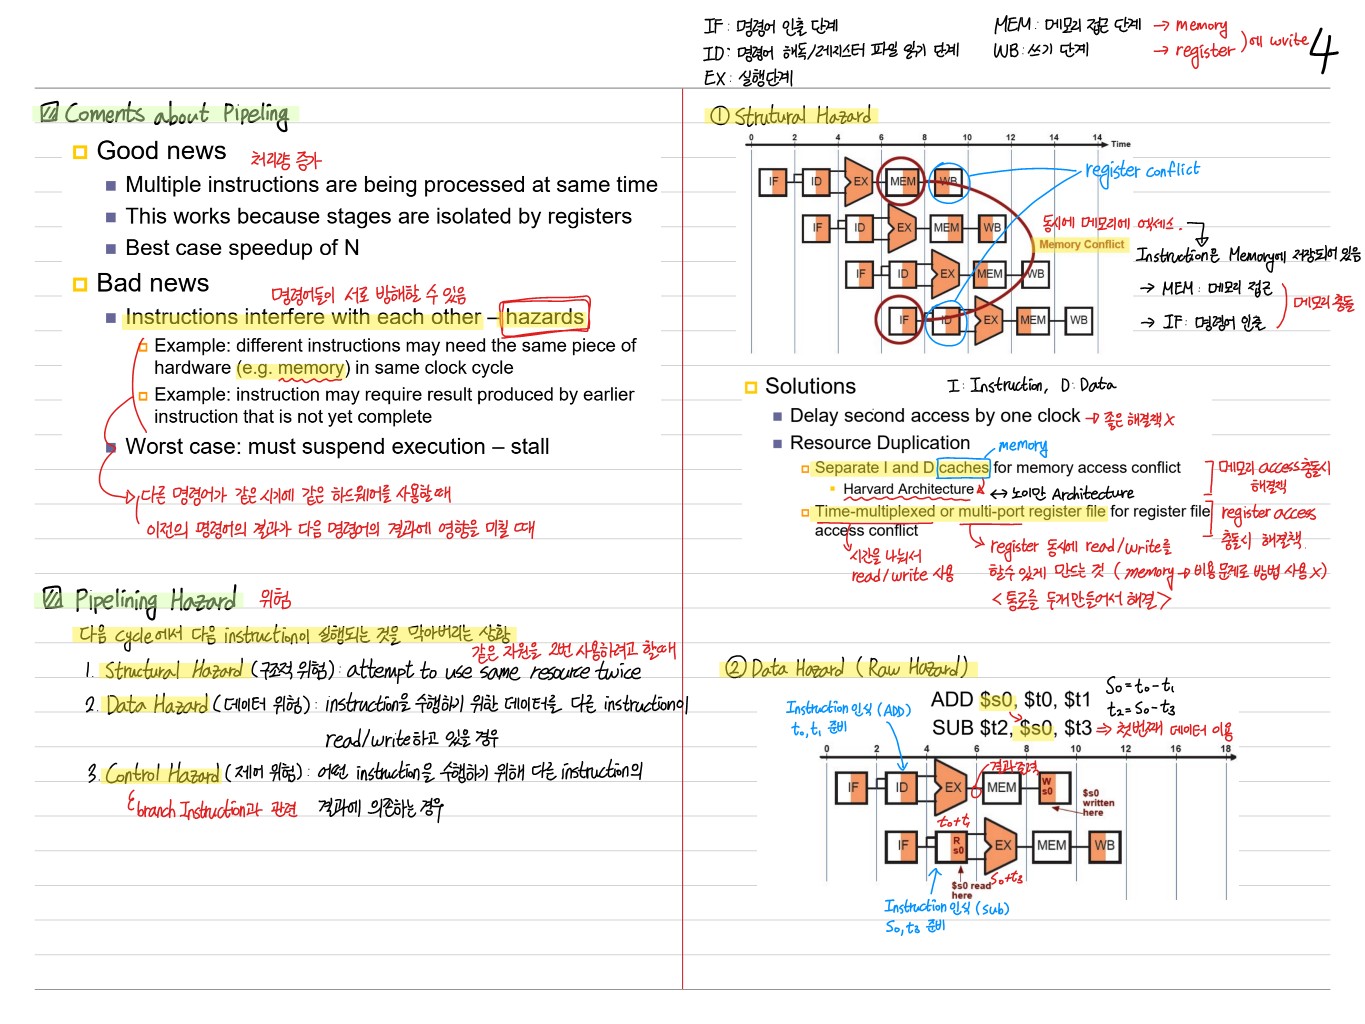 IF : 명령어 인출 단계
ID : 명령어 해독/레지스터 파일 읽기 단계
EX : 실행단계
MEM : 메모리 접근 단계 → memory
WB : 쓰기 단계 → register )에 write
4
Coments about Pipeling
Good news
처리량 증가
Multiple instructions are being processed at same time
This works because stages are isolated by registers
Best case speedup of N
Bad news
명령어들이 서로 방해할 수 있음
Instructions interfere with each other – hazards
Example: different instructions may need the same piece of
hardware (e.g. memory) in same clock cycle
Example: instruction may require result produced by earlier
instruction that is not yet complete
Worst case: must suspend execution – stall
다른 명령어가 같은 시기에 같은 하드웨어를 사용할 때
이전의 명령어의 결과가 다음 명령어의 결과에 영향을 미칠 때
Pipelining Hazard 위험
다음 cycle에서 다음 instruction이 실행되는 것을 막아버리는 상황
같은 자원을 2번 사용하려고 할때
1. Structural Hazard (구조적 위험) : attempt to use same resource twice
2. Data Hazard (데이터 위험) : instruction을 수행하기 위한 데이터를 다른 instruction이
read/write하고 있을 경우
3. Control Hazard (제어 위험) : 어떤 instruction을 수행하기 위해 다른 instruction의
branch Instruction과 관련 결과에 의존하는 경우
① Strutural Hazard
0 2 4 6 8 10 12 14 Time
IF ID EX MEM WB
register conflict
IF ID EX MEM WB
동시에 메모리에 엑세스.
Memory Conflict
Instruction은 Memory에 저장되어 있음
IF ID EX MEM WB
→ MEM : 메모리 접근
→ IF : 명령어 인출
메모리 충돌
IF ID EX MEM WB
Solutions
I : Instruction, D : Data
Delay second access by one clock → 좋은 해결책 X
Resource Duplication
memory
Separate I and D caches for memory access conflict
메모리 access 충돌시
해결책
Harvard Architecture ↔ 노이만 Architecture
Time-multiplexed or multi-port register file for register file
access conflict
register access
충돌시 해결책.
시간을 나눠서
read/write 사용
register 동시에 read/write를
할수 있게 만드는 것 (memory → 비용 문제로 방법 사용 X)
<통로를 두개 만들어서 해결>
② Data Hazard (Raw Hazard)
ADD $s0, $t0, $t1
SUB $t2, $s0, $t3 ⇒ 첫번째 데이터 이용
S0 = t0 - t1
t2 = S0 - t3
Instruction 인식 (ADD)
t0, t1 준비
0 2 4 6 8 10 12 16 18
결과 출력
IF ID EX MEM W s0
$s0
written
here
t0+t1
IF R s0 EX MEM WB
S0+t3
$s0 read
here
Instruction 인식 (sub)
S0, t3 준비